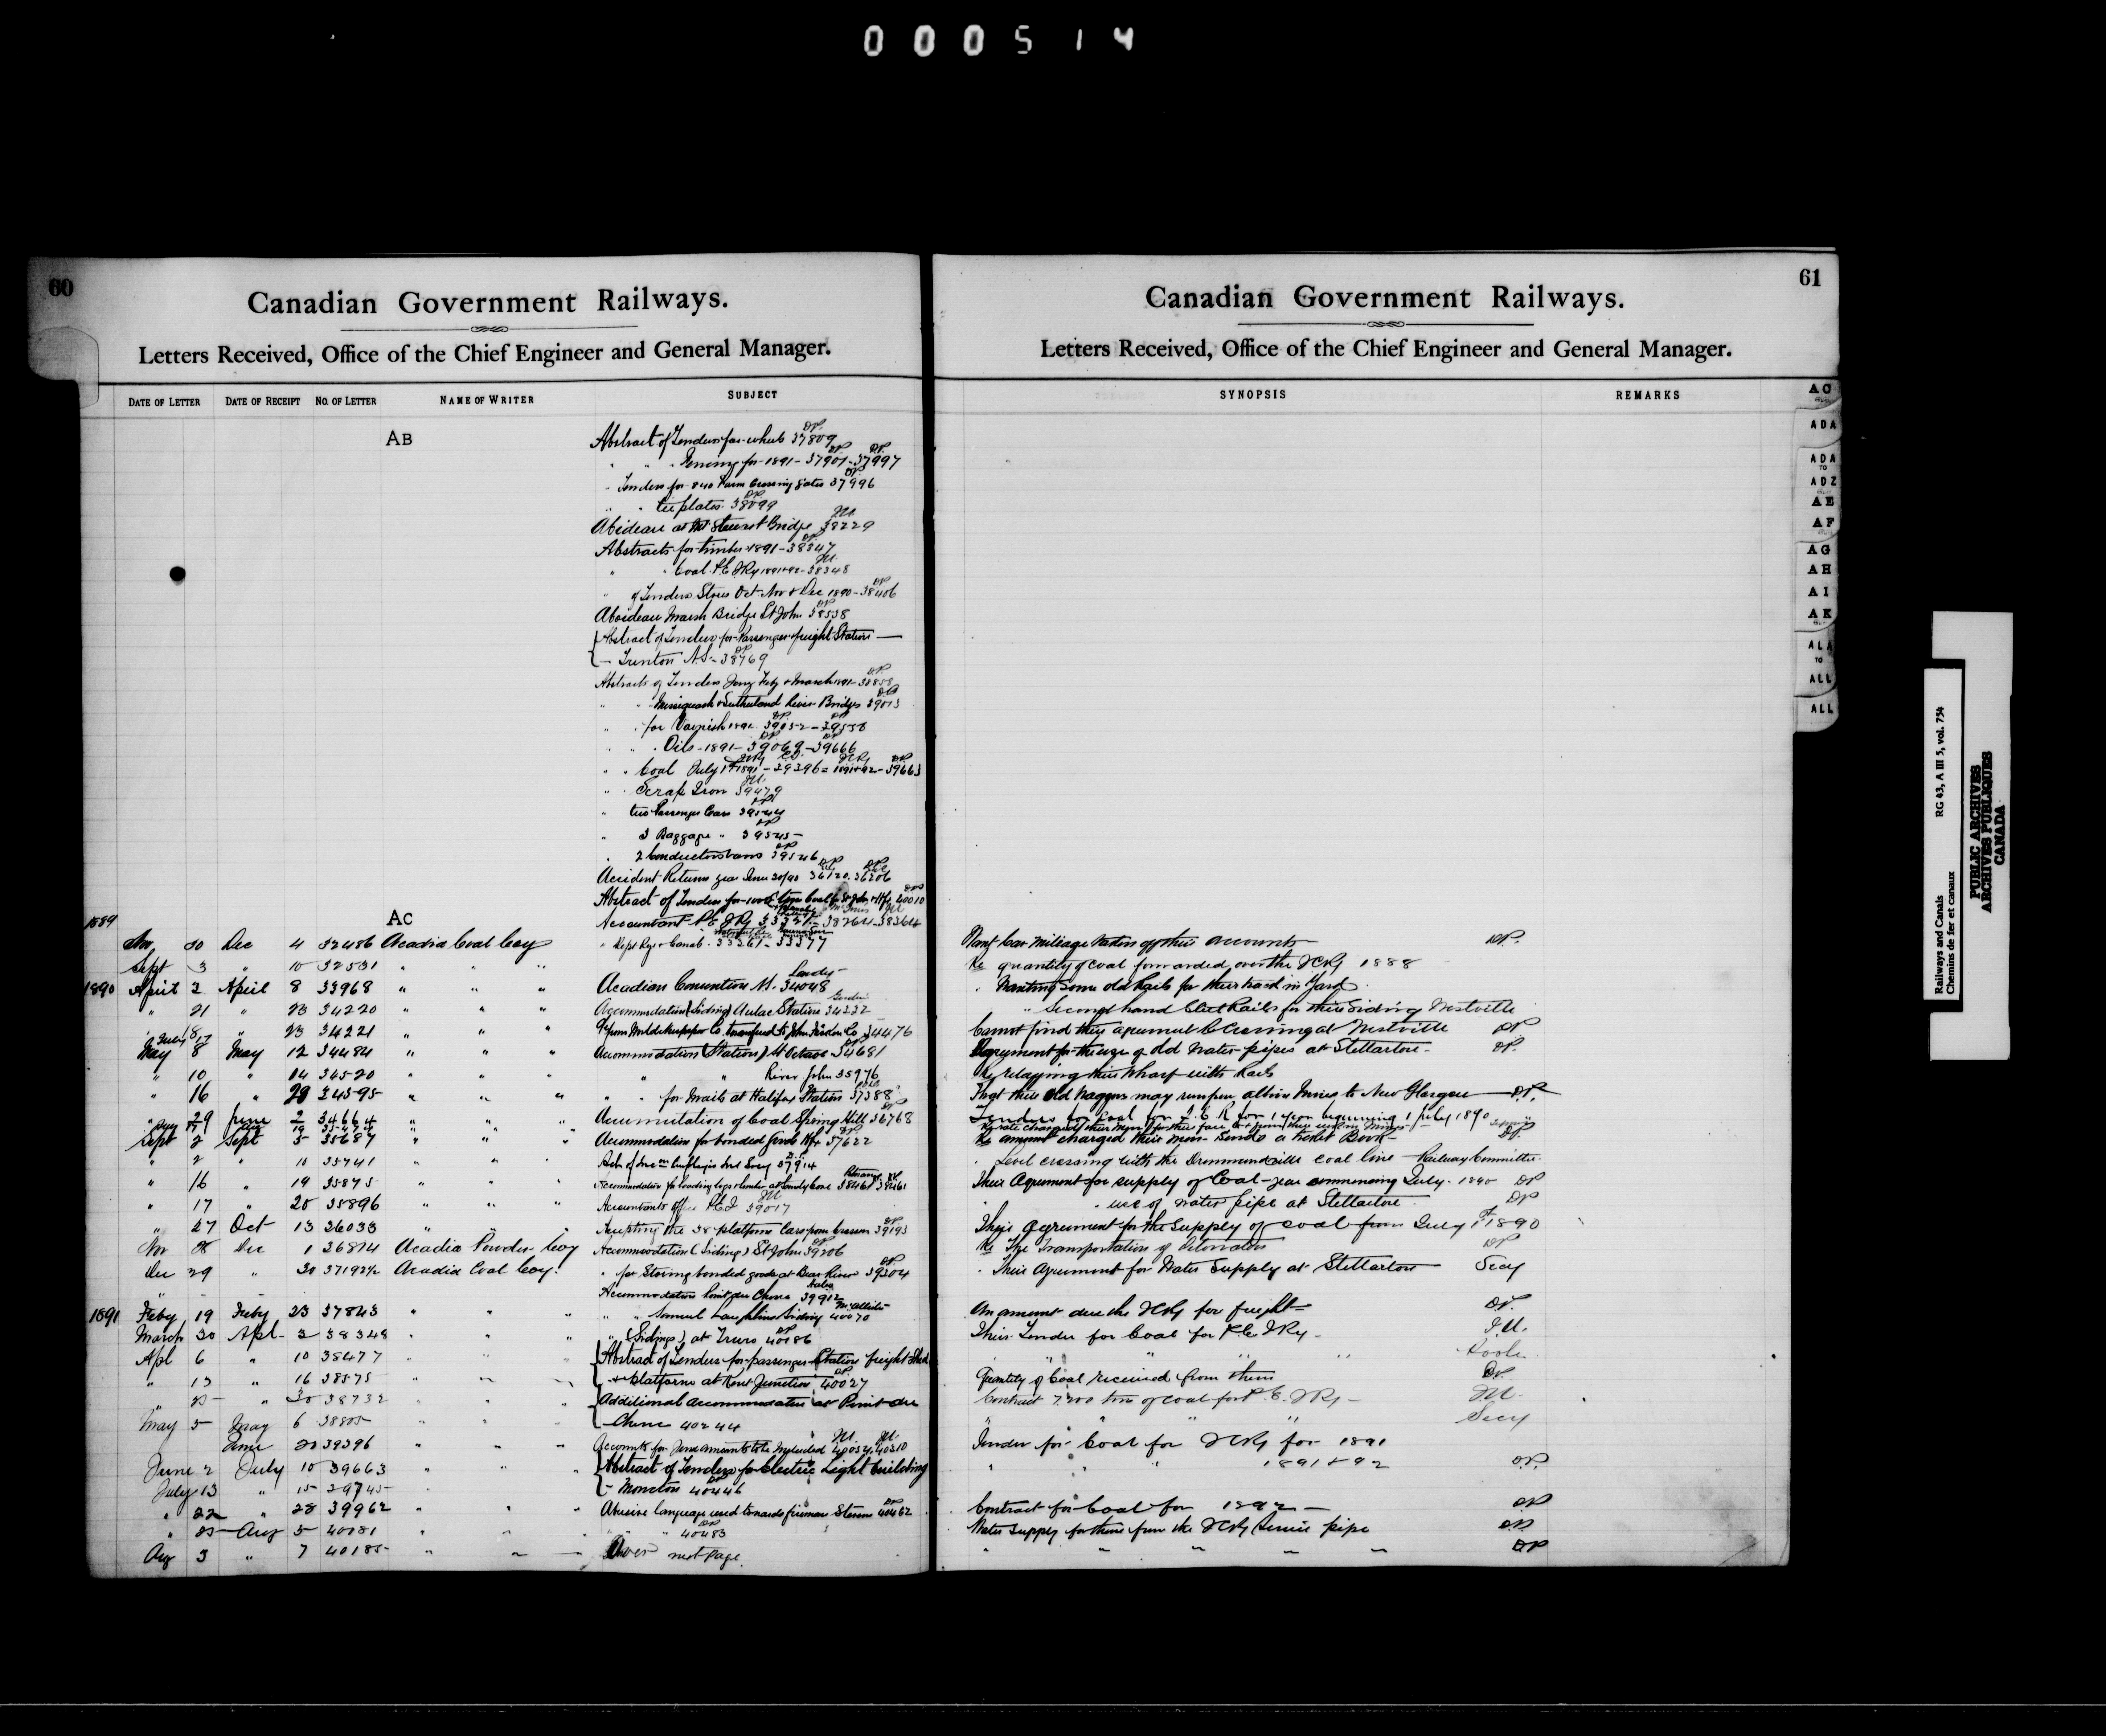 000514
60
Canadian Government Railways.
Letters Received, Office of the Chief Engineer and General Manager.
DATE OF LETTER DATE OF RECEIPT NO. OF LETTER NAME OF WRITER SUBJECT
AB
Abstract of Tenders for wheels 37809 DP.
" " " for 1891 - 37907 - 37997
" Tenders for 840 Farm Crossing Gates 37996
" " tie plates 38099
38229
Abstracts for timber 1891 - 38347
" " Coal P.E.I Ry 1891+92 - 38348
" of Tenders Stores Oct Nov & Dec 1890 - 38406
Aboideau Marsh Bridge St John 38538
Abstract of Tenders for Passenger & freight Station
- Trenton N.S. - 38769
Abstracts of Tenders Jany Feby & March 1891 - 38858
" " Missiguash & Sutherland River Bridges 39013
" " for Varnish 1891 39052 - 39558
" " Oils - 1891 - 39069 - 39666
" " Coal July 1st 1891 - 39396 = 1891+92 - 39663
" " Scrap Iron 39479
" two Passenger Cars 39544
" 3 Baggage " 39545
" 2 Conductors vans 39546
Accident Returns year June 30/90 36120. 36206
Abstract of Tenders for 40010
AC
1889
Accountant P.E.I Ry 33321 - 38264 - 38364
Nov 30 Dec 4 32486 Acadia Coal Coy " Dept Rys & Canals 33261 - 33377
Sept 3 " 10 32531 " " "
1890 April 2 April 8 33968 " " " Acadian Convention 34048
" 21 " 23 34220 " " " Accommodation (Siding) Aulac Station 34232
" 23 34221 " " " 34476
May 8 May 12 34484 " " " Accommodation (Station) St Octave 34681
" 10 " 14 34520 " " " " " River John 35976
" 16 " 20 34595 " " " " " for Mails at Halifax Station 37388
" 29 June 2 34664 " " " Accumulation of Coal Spring Hill 36768
Sept 2 Sept 3 35687 " " " Accommodation for bonded goods Hfx 37622
" 2 " 10 35741 " " " 37914
" 16 " 19 35875 " " " Accommodation for loading logs & lumber at 38461
" 17 " 20 35896 " " " Accountants Office P.E.I 39017
" 27 Oct 13 36033 " " " Accepting the 38 platform Cars from Crossen 39193
Nov 28 Dec 1 36814 Acadia Powder Coy Accommodation (Siding) St John 39206
Dec 29 " 30 37192½ Acadia Coal Coy. " for Storing bonded goods at Bear River 39304
Accommodation Point du Chene 39912
1891 Feby 19 Feby 23 37843 " " " " " Samuel Laughlins Siding 40070
March 30 Apl 2 38348 " " " " (Sidings) at Truro 40186
Apl 6 " 10 38477 " " " Abstract of Tenders for passenger Station freight Shed
" 13 " 16 38575 " " " & platforms at Kent Junction 40027
" 25 " 30 38732 " " " Additional accommodation at Point du
May 5 May 6 38805 " " " - Chene 40244
June 20 39396 " " " Accounts for June amounts to be included 40057. 40310
June 2 July 10 39663 " " " Abstract of Tenders for Electric Light building
July 13 " 15 39745 " - Moncton 40446
" 22 " 28 39962 " " " Abusive language used towards fireman Steven 40462
" 25 Aug 5 40081 " " " " " " 40483
Aug 3 " 7 40185 " " " Over next page.
61
Canadian Government Railways.
Letters Received, Office of the Chief Engineer and General Manager.
SYNOPSIS REMARKS
Want Car mileage taken off their accounts DP.
Re quantity of coal forwarded over the ICRy 1888
" Wanting Some old Rails for their track in Yard
" Second hand Rails for their Siding Westville
Cannot find their agreement Crossing at Westville DP
Agreement for the use of old water pipes at Stellarton DP.
Re relaying their Wharf with Rails
That their old waggons may run from Albion Mines to New Glasgow DP.
Tenders for Coal for I.C.R for 1 year beginning 1 July 1890
Re amount charged their men - Sends a ticket Book DP.
" Level crossing with the Drummondville coal line Railway Committee
Their Agreement for supply of Coal - year commencing July 1890 DP
" " use of water pipe at Stellarton DP
Their agreement for the Supply of coal from July 1st 1890
Re The Transportation of Detonators DP
" Their Agreement for Water Supply at Stellarton Secy
An amount due the ICRy for freight DP.
Their Tender for Coal for P.E.I Ry J.U.
" " " " Poole
Quantity of Coal received from them DP.
Contract 7200 tons of coal for P.E.I Ry J.U.
" " " " Secy
Tender for Coal for ICRy for 1891
" " " 1891+92 DP.
Contract for Coal for 1892 DP
Water Supply for them from the ICRy Service pipe DP
" " " " " DP
AC
ADA
ADA
TO
ADZ
AE
AF
AG
AH
AI
AK
ALA
TO
ALL
ALL
Railways and Canals RG 43, A III 5, vol. 754
Chemins de fer et canaux
PUBLIC ARCHIVES
ARCHIVES PUBLIQUES
CANADA